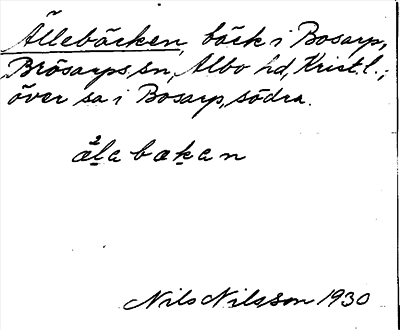 Ällebäcken, bäck i Bosarp,
Brösarps sn, Albo hd, Krist.l.;
över sa i Bosarp, södra.
älabäkan
Nils Nilsson 1930